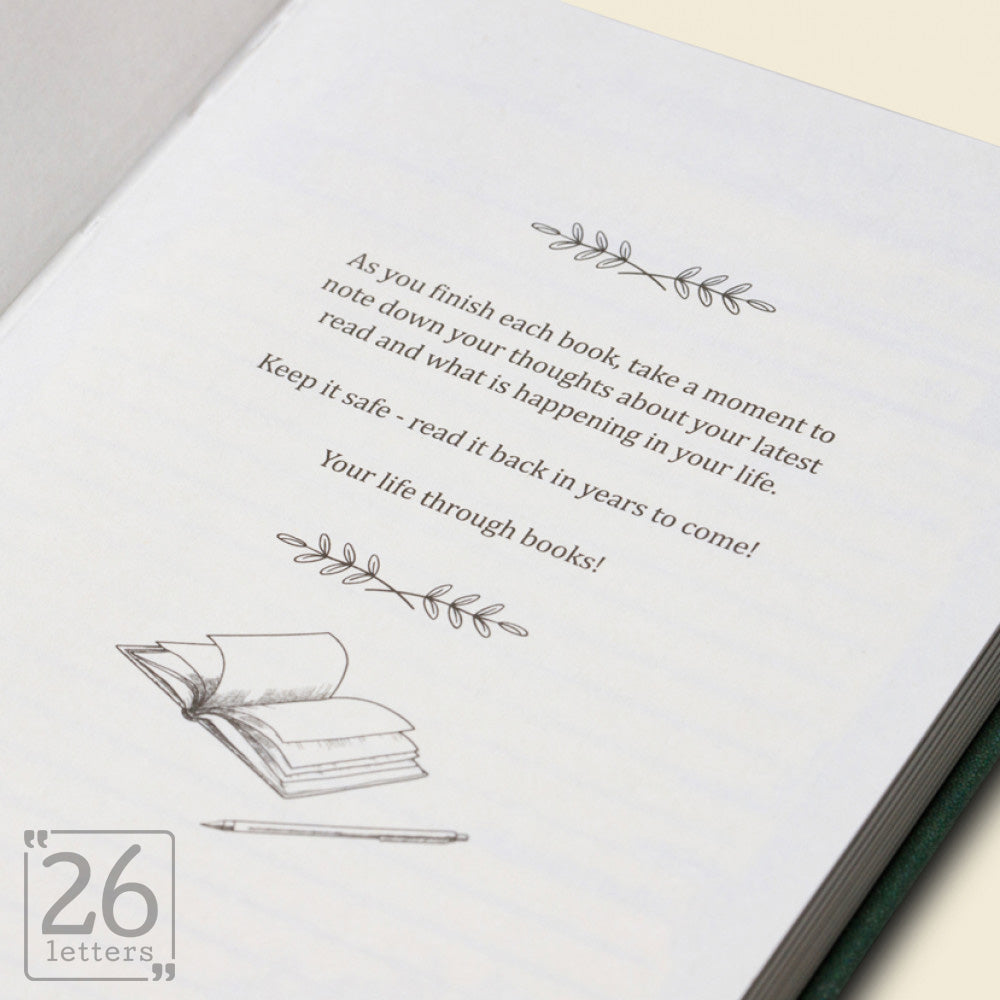 As you finish each book, take a moment to
note down your thoughts about your latest
read and what is happening in your life.
Keep it safe - read it back in years to come!
Your life through books!
"26
letters"